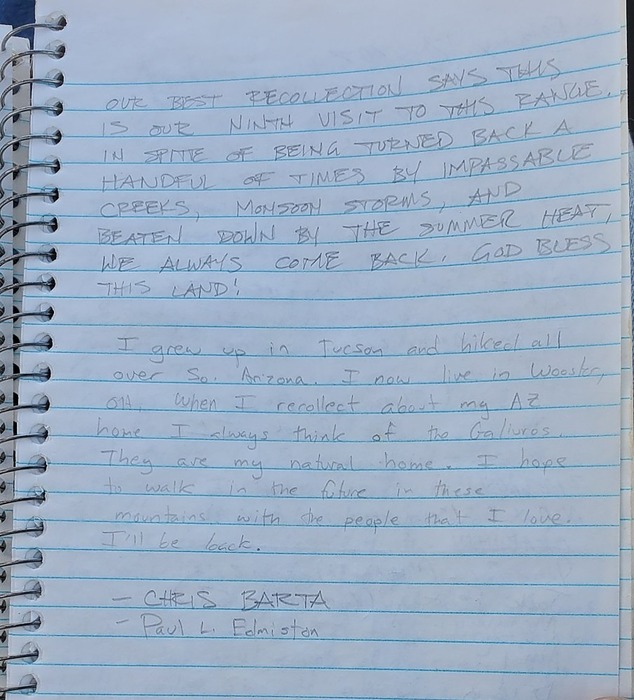 OUR BEST RECOLLECTION SAYS THIS
IS OUR NINTH VISIT TO THIS RANGE.
IN SPITE OF BEING TURNED BACK A
HANDFUL OF TIMES BY IMPASSABLE
CREEKS, MONSOON STORMS, AND
BEATEN DOWN BY THE SUMMER HEAT,
WE ALWAYS COME BACK. GOD BLESS
THIS LAND!
I grew up in Tucson and hiked all
over So. Arizona. I now live in Wooster,
OH. When I recollect about my AZ
home I always think of the Galiuros.
They are my natural home. I hope
to walk in the future in these
mountains with the people that I love.
I'll be back.
- CHRIS BARTA
- Paul L. Edmiston